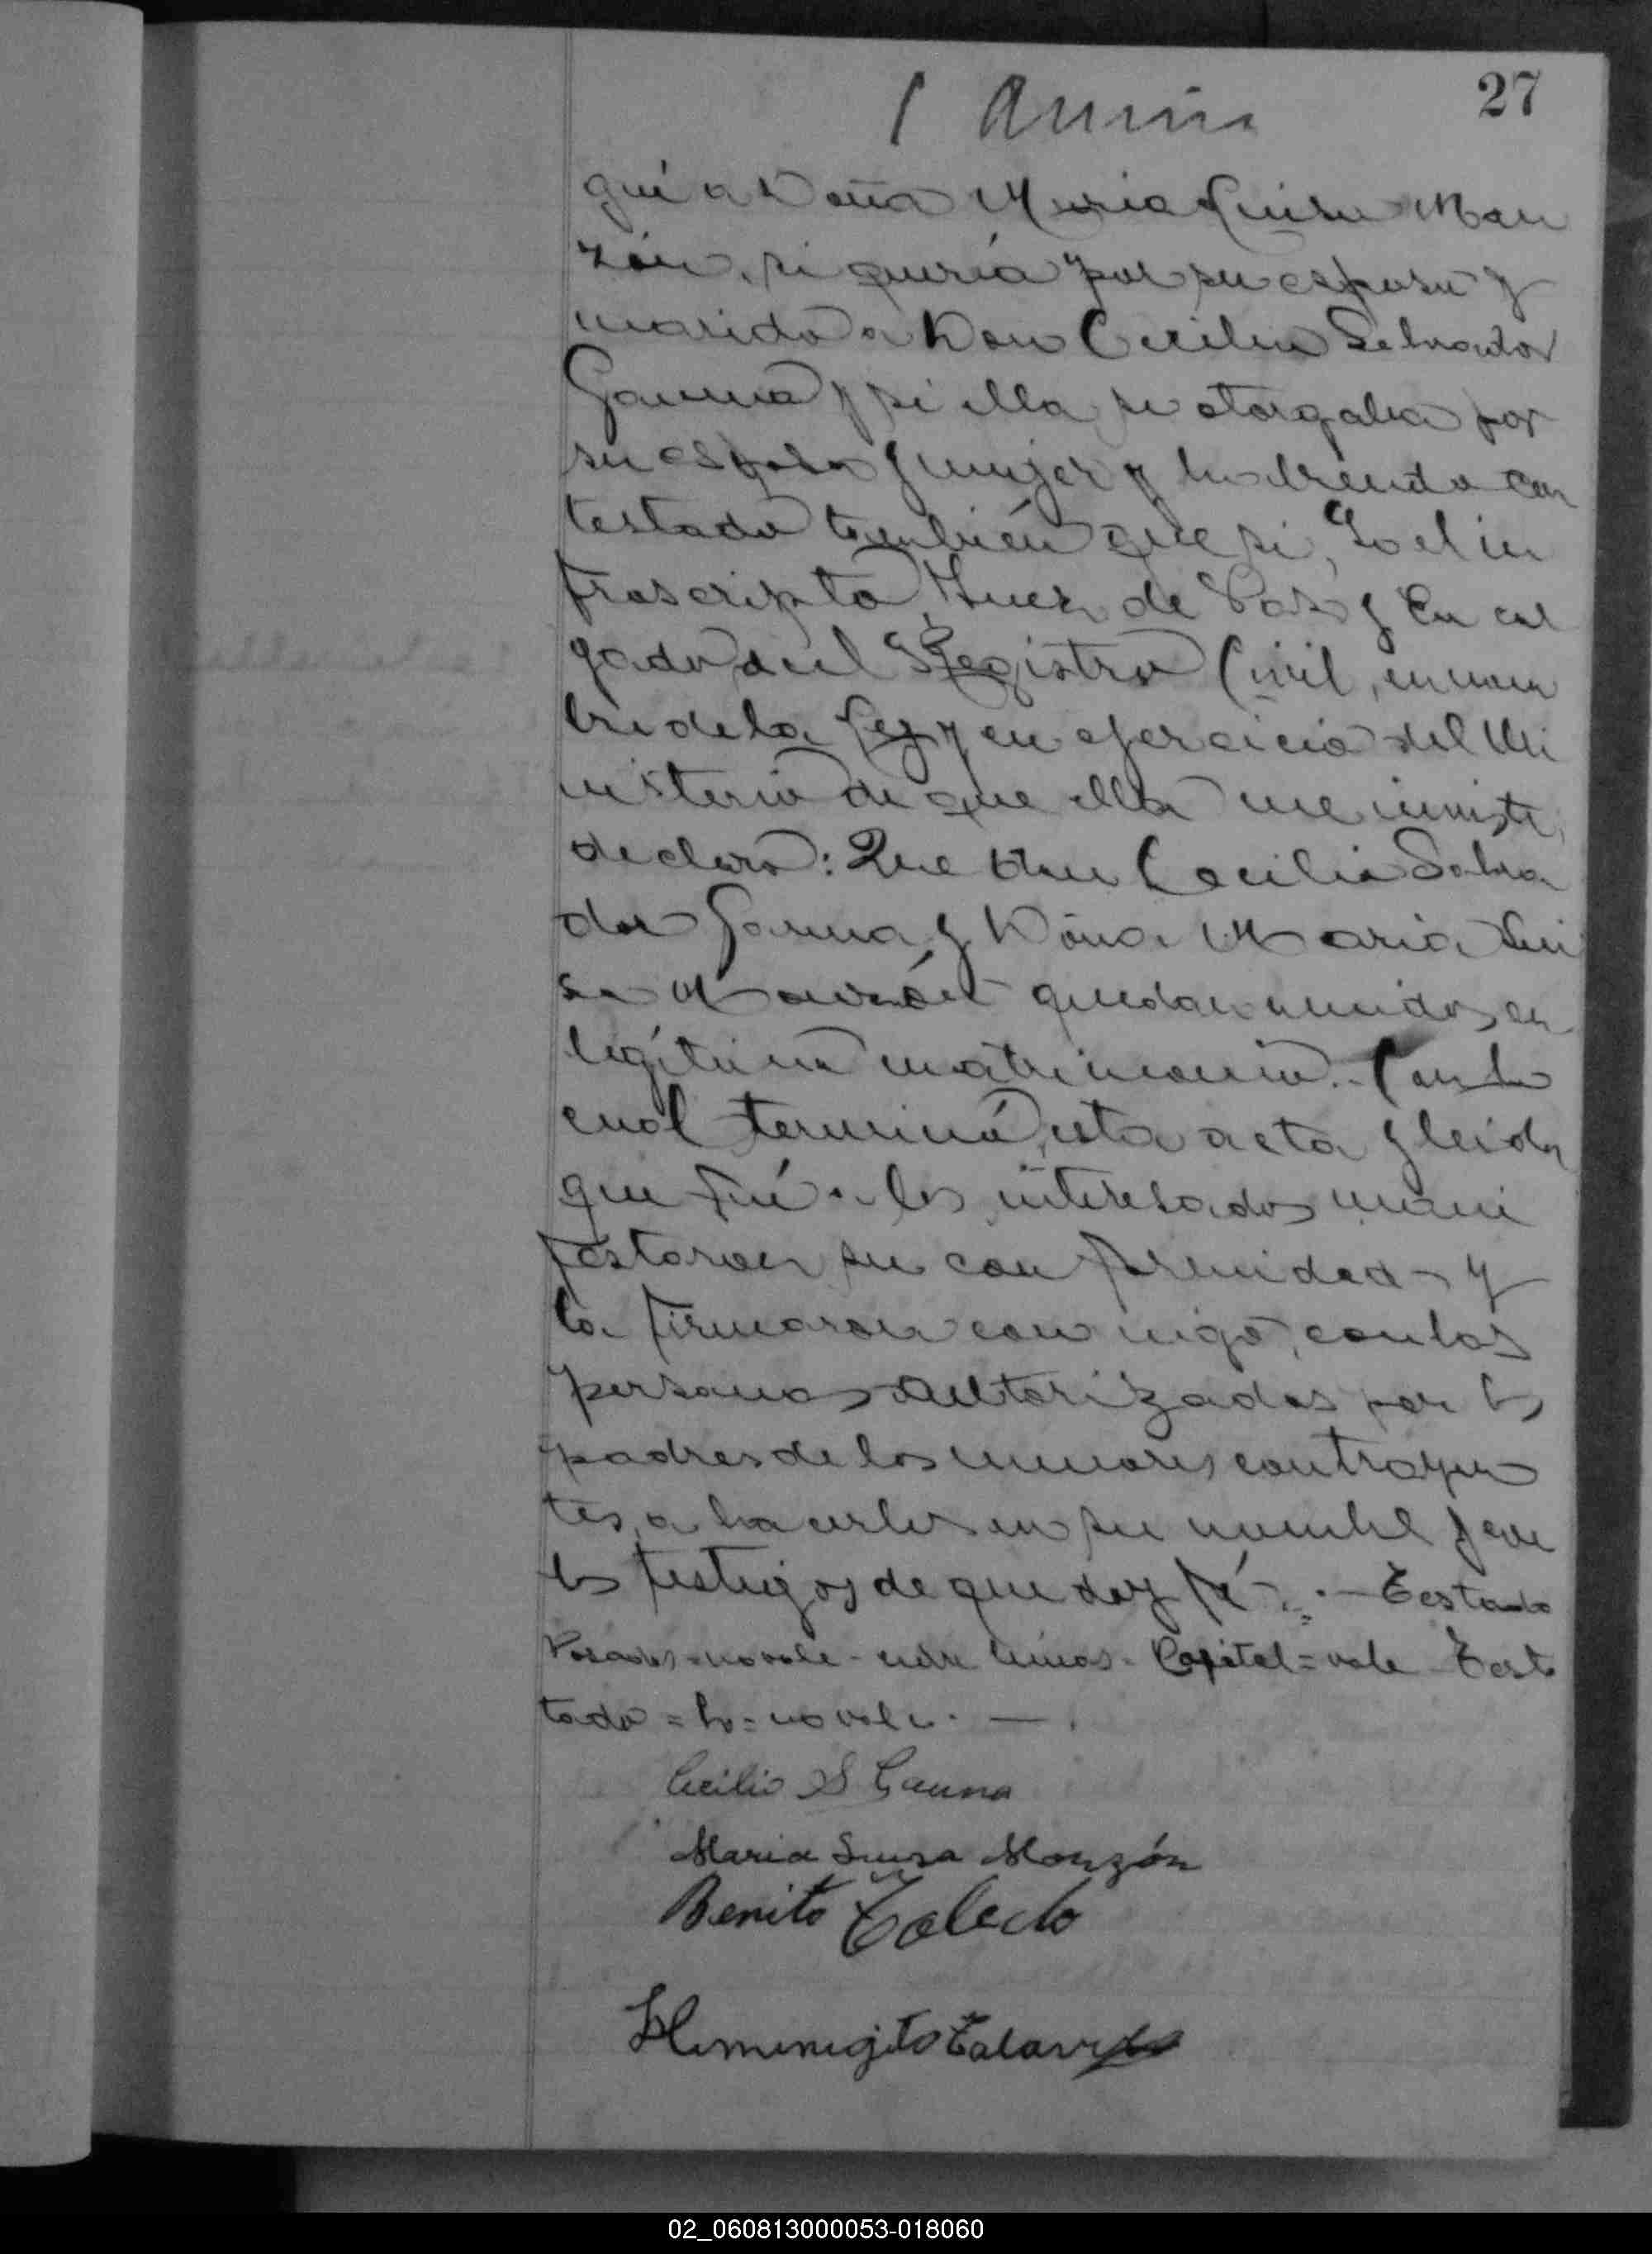 27
gué a Doña Maria Luisa Mon
zón, si quería por su esposo y
marido a Don Cecilio Salvador
Gauna y si ella se otorgaba por
su esposa y mujer y habiendo con
testado también que si, Yo el in
frascripto Juez de Paz y En car
gado del Registro Civil, en nom
bre de la Ley y en ejercicio del Mi
nisterio de que ella me inviste,
declaro: Que Don Cecilio Salva
dor Gauna y Doña Maria Lui
sa Monzón quedan unidos en
legítimo matrimonio. Con lo
cual terminó esta acta y leida
que fué a los interesados mani
festaron su con formidad y
la firmaron con migo, con las
personas autorizadas por los
padres de los menores contrayen
tes, a hacerlo en su nombre y con
los testigos de que doy fé.- Testado
Posadas=no vale- entre lineas- Capital=vale Test
tado = lo = no vale. —
Cecilio S Gauna
Maria Luisa Monzón
Benito Toledo